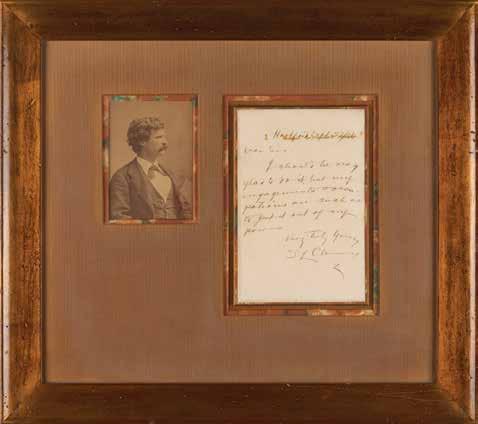 Dear Sir:
I should be very
glad to do it but my
engagements & occu-
pations are such as
to put it out of my
power.
Very Truly Yours
S L Clemens